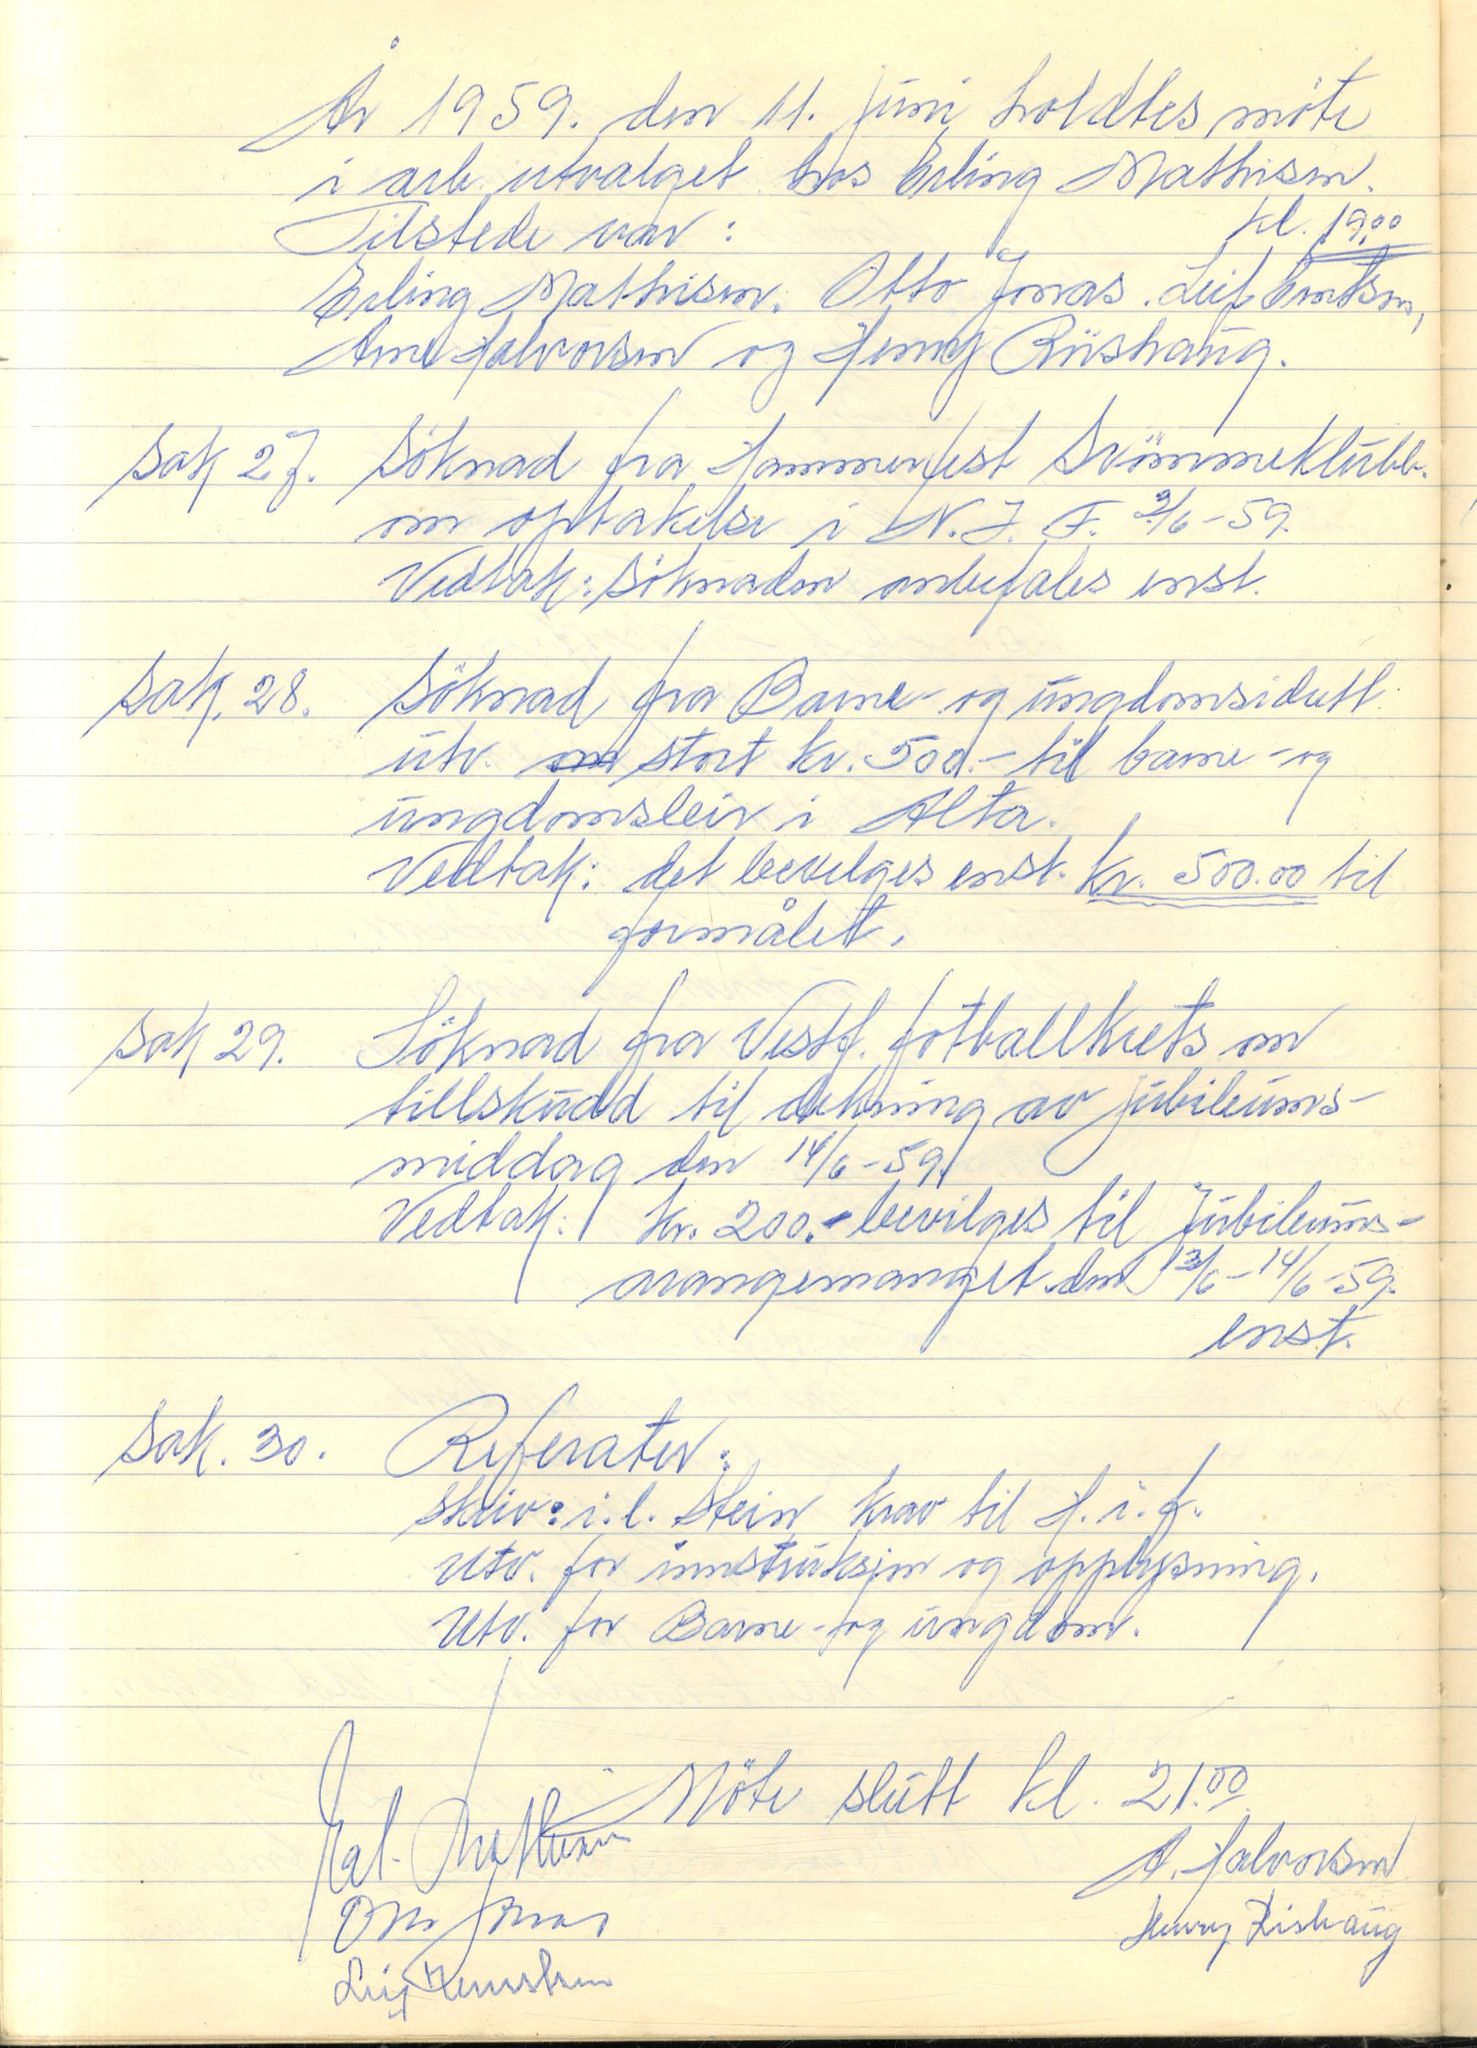 År 1959. den 11. juni holdtes möte
i arb. utvalget hos Erling Mathisen.
Tilstede var: kl. 19.00
Erling Mathisen. Otto Jonas. Leif
Arne Halvorsen og Henry Riishaug.
Sak 27. Söknad fra Hammerfest Svömmeklubb.
om optakelse i N.I.F. 2/6-59.
Vedtak: Söknaden anbefales enst.
Sak. 28. Söknad fra Barne- og ungdomsidrett
utv. stort kr. 500.- til barne- og
ungdomsleir i Alta.
Vedtak: det bevilges enst. kr. 500.00 til
formålet.
Sak 29. Söknad fra Vestf. fotballkrets om
tillskudd til dekning av jubileums-
middag den 14/6-59.
Vedtak: kr. 200.- bevilges til Jubileums-
arangemanget den 13/6-14/6-59.
enst.
Sak. 30. Referater:
Skriv: i.l. Stein krav til H.i.f.
Utv. for innstruksjon og opplysning.
Utv. for Barne- og ungdom.
Möte slutt kl. 21.00
Mathisen
A. Halvorsen
Otto Jonas
Henry Rishaug
Leif